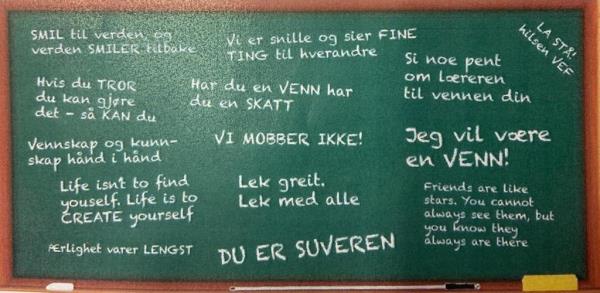 SMIL til verden, og
verden SMILER tilbake
Vi er snille og sier FINE
TING til hverandre
LA STÅ!
hilsen VEF
Si noe pent
om læreren
til vennen din
Hvis du TROR
du kan gjøre
det - så KAN du
Har du en VENN har
du en SKATT
Vennskap og kunn-
skap hånd i hånd
VI MOBBER IKKE!
Jeg vil være
en VENN!
Life isn't to find
youself. Life is to
CREATE yourself
Lek greit.
Lek med alle
Friends are like
stars. You cannot
always see them, but
you know they
always are there
Ærlighet varer LENGST
DU ER SUVEREN